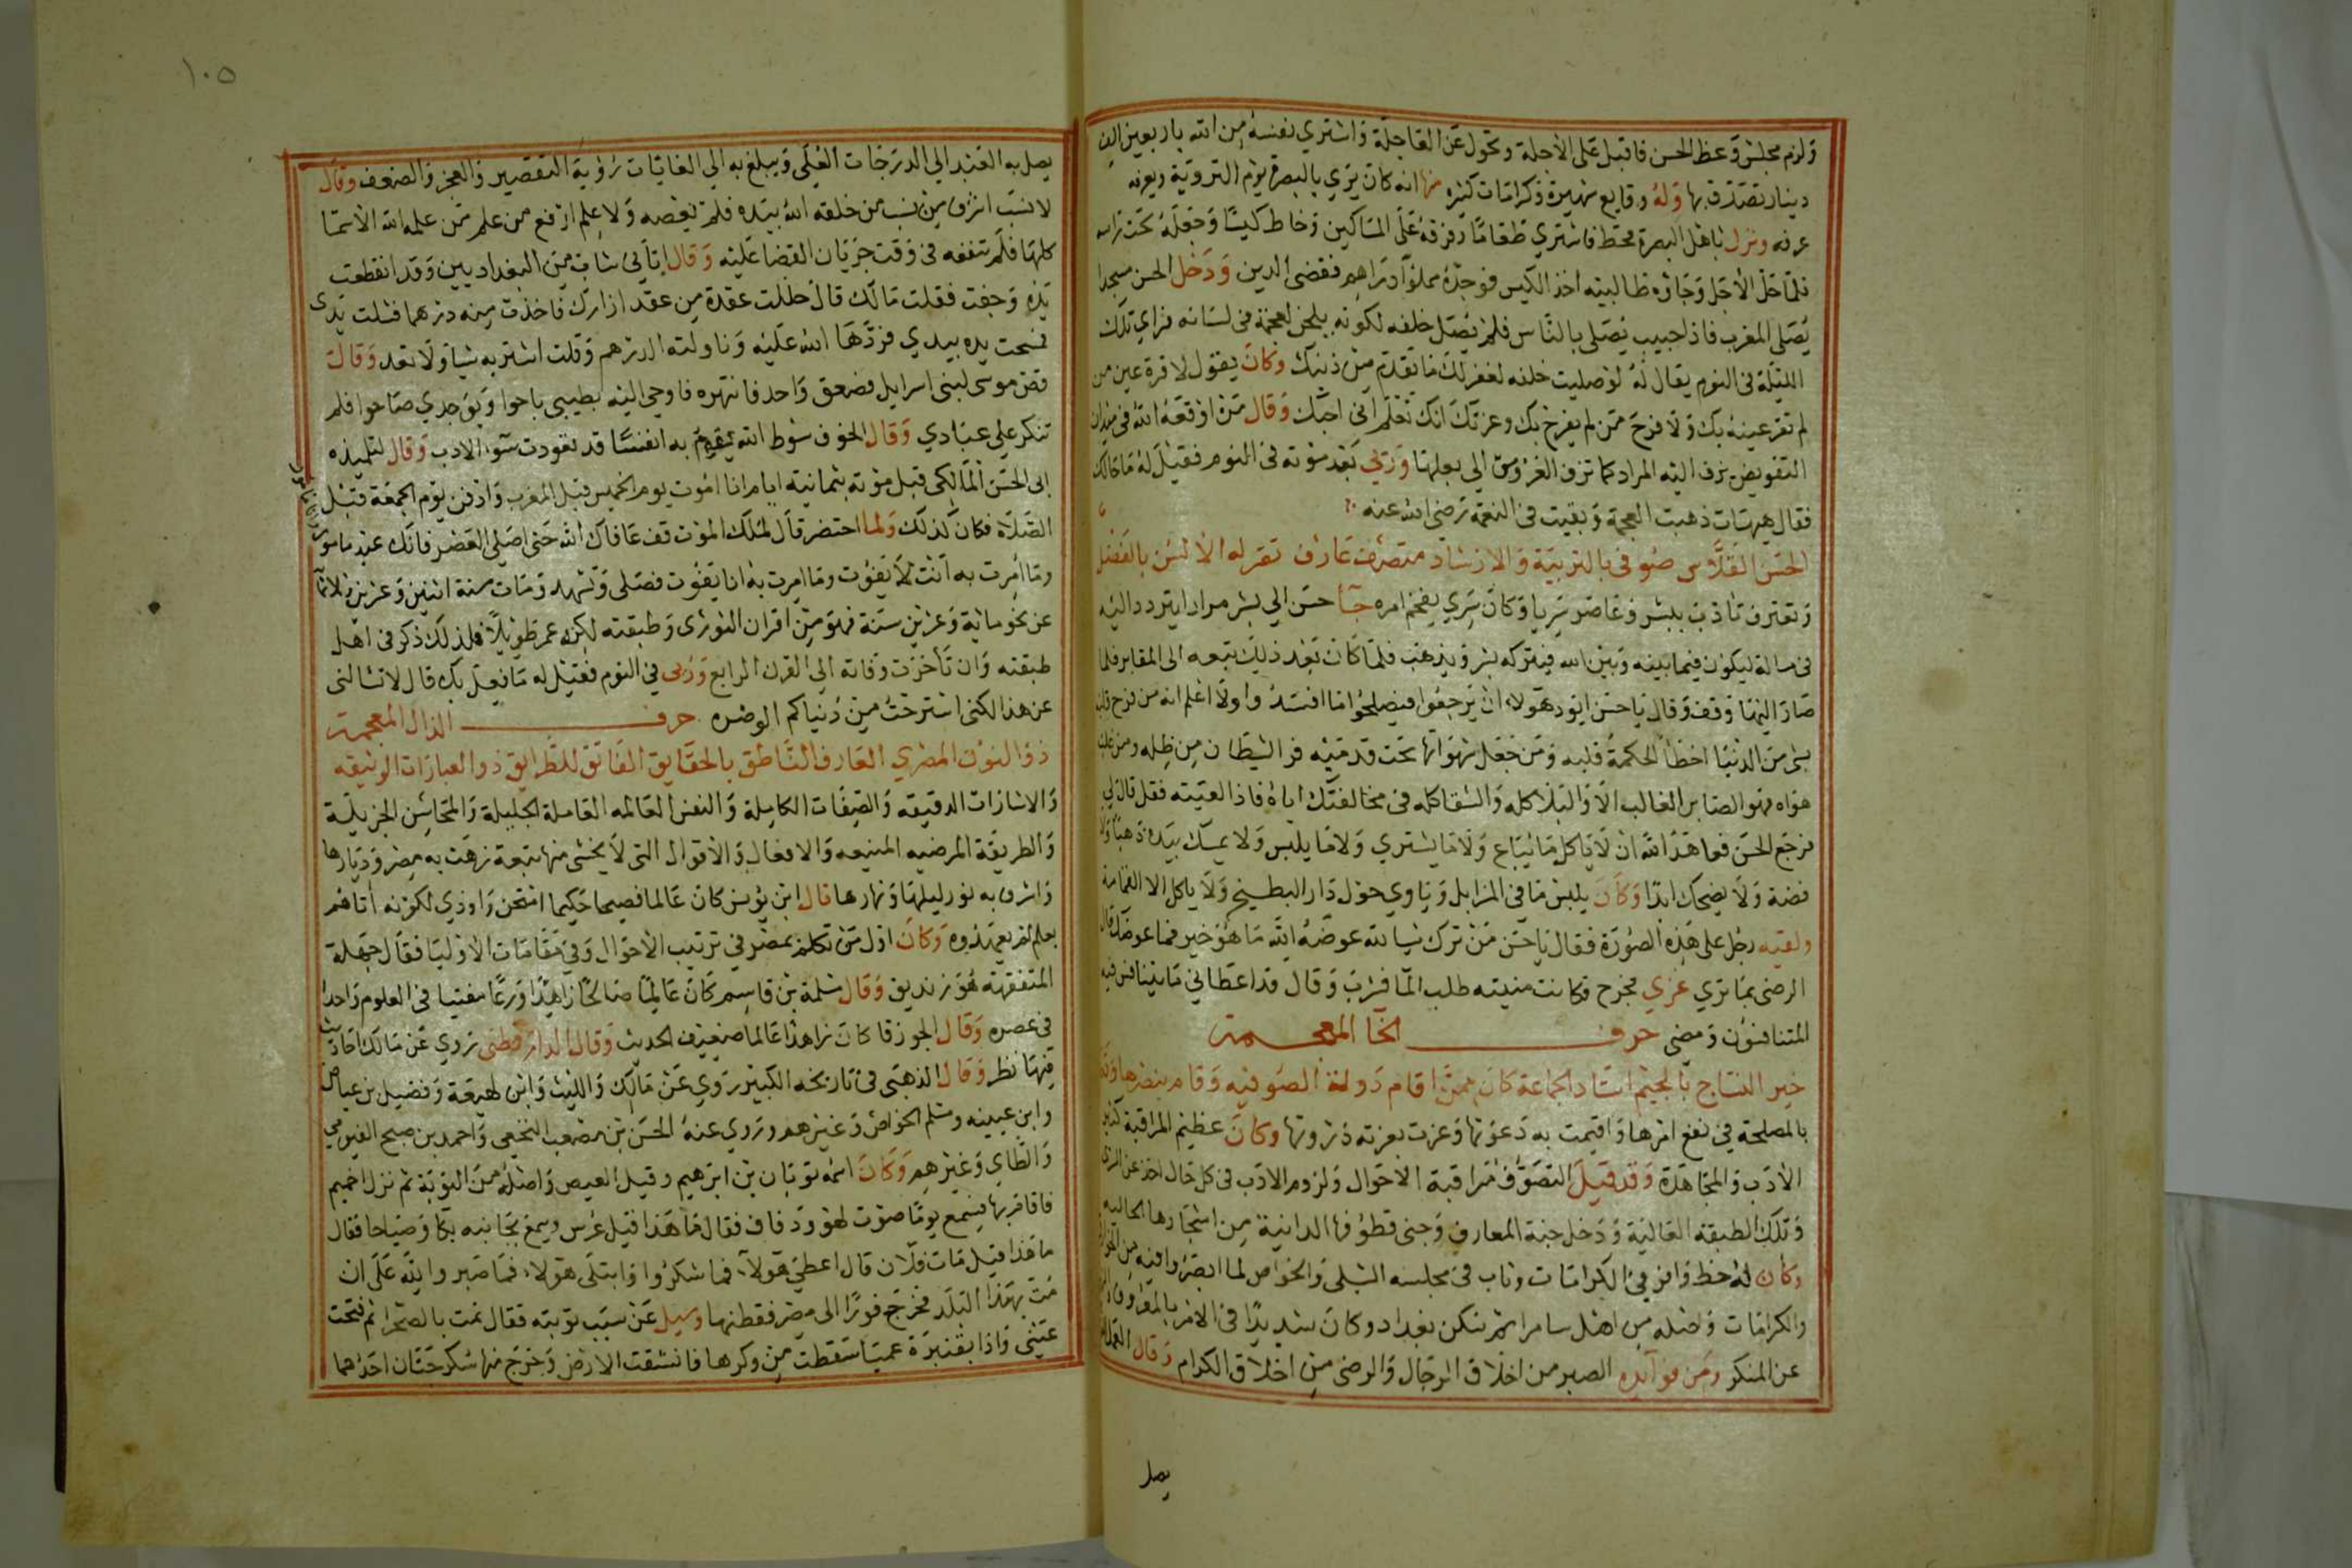 ولزم مجلس وعظ الحسن فاقبل على الآجلة وتحول عن العاجلة واشتري نفسه من الله باربعين الف
دينار تصدق بها وله وقايع شهيرة وكرامات كثيره منها انه كان يري بالبصرة يوم التروية وبعرفه
عرفه ونزل باهل البصرة قحط فاشتري طعاما وفرقه على المساكين وخاط كيسا وجعله تحت راسه
فلما حل الأجل وجاؤه طالبيه اخذ الكيس فوجده مملوا دراهم فقضى الدين ودخل الحسن مسجدا
يصلي المغرب فاذا حبيب يصلى بالناس فلم يصل خلفه لكونه يلحن لعجمة فى لسانه فراي تلك
الليلة فى النوم يقال له لو صليت خلفه لغفر لك ما تقدم من ذنبك وكان يقول لا قرة عين من
لم تقر عينه بك ولا فرح من لم يفرح بك وعزتك انك تعلم انى احبك وقال من اوقفه الله فى ميدان
التفويض تزف اليه المراد كما تزف العروس الي بعلها وري بعد موته فى النوم فقيل له ما حالك
فقال هيهات ذهبت العجمة وبقيت فى النعمة رضى الله عنه
الحسن الفلاس صوفى بالتربية والارشاد متصرف عارف تقر له الألسن بالفضل
وتعترف تاذب ببشر وعاصر سريا وكان سري يفخم امره جأ حسن الي بشر مرارا يتردد اليه
فى مسالة ليكون فيما بينه وبين الله فيتركه بشر ويذهب فلما كان بعد ذلك تبعه الى المقابر فلما
صار اليها وقف وقال يا حسن ايود هولاء ان يرجعوا فيصلحوا ما افسدوا ولا اعلم انه من فرح قلبه
بشى من الدنيا اخطأ الحكمة قلبه ومن جعل شهواتها تحت قدميه فر الشيطان من ظله ومن غلب
هواه فهو الصابر الغالب الا والبلا كله والشقا كله فى مخالفتك اياه فاذا لقيته فقل قال لي
فرجع الحسن فعاهد الله ان لا ياكل ما يباع ولا ما يشتري ولا ما يلبس ولا يمسك بيده ذهبا ولا
فضة ولا يضحك ابدا وكان يلبس ما في المزابل وياوي حول دار البطيخ ولا ياكل الا القمامة
ولقيه رجل على هذه الصورة فقال يا حسن من ترك شيا لله عوضه الله ما هو خير فما عوضك قال
الرضى بما تري غزي فجرح وكانت منيته طلب الما فشرب وقال قد اعطاني ما يتنافس فيه
المتنافسون ومضى حرف الخا المعجمة
خير النساج بالجيم استاد الجماعة كان ممن اقام دولة الصوفيه وقام بنصرها
بالمصلحة في نفع امرها واقيمت به دعوتها وعزت بعزته ذروتها وكان عظيم المراقبة كثير
الأدب والمجاهدة وقد قيل التصوف مراقبة الاحوال ولزوم الادب فى كل حال اخذ عن السري
وتلك الطبقة العالية ودخل جنة المعارف وجنى قطوفها الدانية من اشجارها العاليه
وكان له حظ وافر في الكرامات وتاب فى مجلسه الشبلى والخواص لما ابصروا فيه من
والكرامات واصله من اهل سامرا ثم سكن بغداد وكان شديدا فى الامر بالمعروف
عن المنكر ومن فوايده الصبر من اخلاق الرجال والرضى من اخلاق الكرام وقال العمل
يصل
١٠٥
يصل به العبد الي الدرجات العلى ويبلغ به الي الغايات رؤية التقصير والعجز والضعف وقال
لا نسب اشرف من نسب من خلقه الله بيده فلم يعصه ولا علم ارفع من علم من علمه الله الأسما
كلها فلم تنفعه فى وقت جريان القضا عليه وقال اتاني شاب من البغداديين وقد انقطعت
يده وجفت فقلت مالك قال حللت عقدة من عقد ازارك فاخذت منه درهما فشلت يدى
فمسحت يده بيدي فردها الله عليه وناولته الدرهم وقلت اشتر به شيا ولا تعد وقال
قص موسى لبنى اسرايل فصعق واحد فانتهره فاوحى اليه بطيبى باحوا وبوجدي صاحوا فلم
تنكر علي عبادي وقال الخوف سوط الله يقوم به انفسا قد تعودت سو الادب وقال لتلميذه
ابى الحسن المالكى قبل موته بثمانية ايام انا اموت يوم الخميس قبل المغرب وادفن يوم الجمعة قبل
الصلاة فكان كذلك ولما احتضر قال لملك الموت قف عافاك الله حتى اصلى العصر فانك عبد مامور
وما أمرت به أنت لا يفوت وما امرت به انا يفوت فصلى وتشهد ومات سنة اثنين وعشرين وثلاثماية
عن نحو ماية وعشرين سنة فهو من اقران النورى وطبقته لكنه عمر طويلا فلذلك ذكر فى اهل
طبقته وان تأخرت وفاته الي القرن الرابع ورؤى في النوم فقيل له ما فعل بك قال لا تسالنى
عن هذا لكنى استرحت من دنياكم الوضره حرف الذال المعجمة
ذو النون المصري العارف الناطق بالحقايق الفاتق للطرايق ذو العبارات الوثيقه
والاشارات الدقيقه والصفات الكاملة والنفس العالمه العاملة الجليلة والمحاسن الجزيلة
والطريقة المرضيه المنيعه والافعال والأقوال التى لا يخشى منها تبعة زهت به مصر وديارها
واشرق به نور ليلها ونهارها قال ابن يونس كان عالما فصيحا حكيما امتحن واوذي لكونه أتاهم
بعلم لم يعهدوه وكان اول من تكلم بمصر في ترتيب الأحوال وفي مقامات الأوليا فقال جهلة
المتفقهة هو زنديق وقال مسلمة بن قاسم كان عالما صالحا زاهدا ورعا مفتيا فى العلوم واحدا
في عصره وقال الجوزقا كان زاهدا عالما ضعيف الحديث وقال الدارقطنى روي عن مالك احاديث
فيها نظر وقال الذهبى فى تاريخه الكبير روي عن مالك والليث وابن لهيعة وفضيل بن عياض
وابن عيينه ومسلم الخواص وغيرهم وروي عنه الحسن بن مصعب النخعى واحمد بن صبيح الفيومي
والطاي وغيرهم وكان اسمه ثوبان بن ابرهيم وقيل الفيض واصله من النوبة ثم نزل اخميم
فاقام بها فسمع يوما صوت لهو ودفاف فقال ما هذا قيل عرس وسمع بجانبه بكا وصياحا فقال
ما هذا قيل مات فلان قال اعطى هولاء فما شكروا وابتلى هولاء فما صبروا لله على ان
مت بهذا البلد فخرج فورا الى مصر فقطنها وسيل عن سبب توبته فقال نمت بالصحرا ثم فتحت
عينى واذا بقنبرة عميا سقطت من وكرها فانشقت الارض وخرج منها سكرجتان احدهما